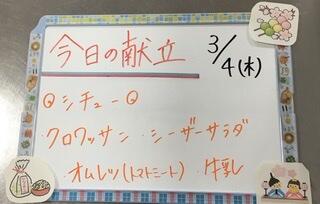 今日の献立 3/4(木)
◎シチュー◎
クロワッサン ・シーザーサラダ
・オムレツ(トマトミート) ・牛乳